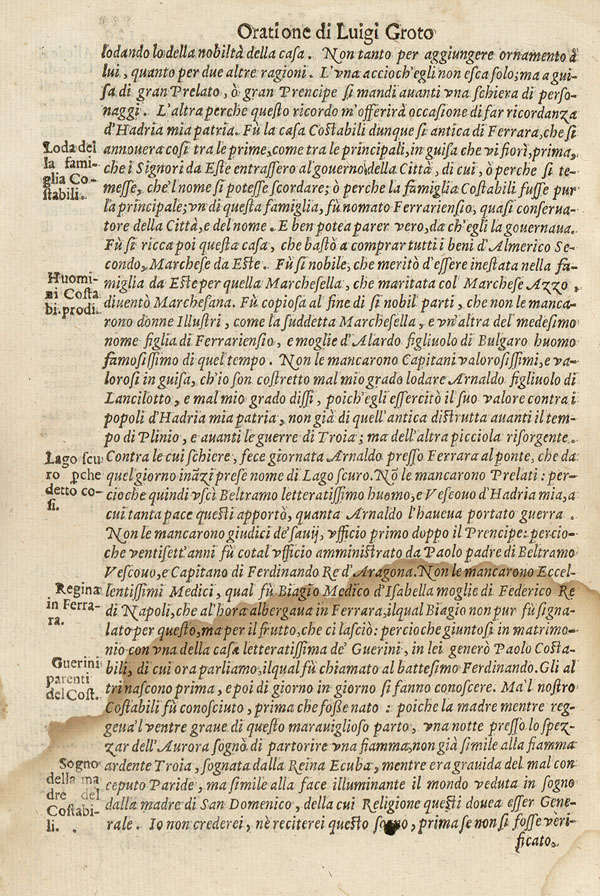 Oratione di Luigi Groto
lodando lo della nobiltà della casa. Non tanto per aggiungere ornamento à
lui, quanto per due altre ragioni. L'vna accioch'egli non esca solo; ma a gui-
sa di gran Prelato, ò gran Prencipe si mandi auanti vna schiera di perso-
naggi. L'altra perche questo ricordo m'offerirà occasione di far ricordanza
d'Hadria mia patria. Fù la casa Costabili dunque sì antica di Ferrara, che si
annouera così tra le prime, come tra le principali, in guisa che vi fiorì, prima,
che i Signori da Este entrassero al gouerno della Città, di cui, ò perche si te-
messe, che'l nome si potesse scordare; ò perche la famiglia Costabili fusse pur
la principale; vn di questa famiglia, fù nomato Ferrariensio, quasi conserua-
tore della Città, e del nome. E ben potea parer vero, da ch'egli la gouernaua.
Fù sì ricca poi questa casa, che bastò a comprar tutti i beni d'Almerico Se-
condo, Marchese da Este. Fù sì nobile, che meritò d'essere inestata nella fa-
miglia da Este per quella Marchesella, che maritata col Marchese Azzo,
diuentò Marchesana. Fù copiosa al fine di sì nobil parti, che non le manca-
rono donne Illustri, come la suddetta Marchesella, e vn'altra del medesimo
nome figlia di Ferrariensio, e moglie d'Alardo figliuolo di Bulgaro huomo
famosissimo di quel tempo. Non le mancarono Capitani valorosissimi, e va-
lorosi in guisa, ch'io son costretto mal mio grado lodare Arnaldo figliuolo di
Lancilotto, e mal mio grado dissi, poich'egli essercitò il suo valore contra i
popoli d'Hadria mia patria, non già di quell'antica distrutta auanti il tem-
po di Plinio, e auanti le guerre di Troia; ma dell'altra picciola risorgente.
Contra le cui schiere, fece giornata Arnaldo presso Ferrara al ponte, che da
quel giorno inãzi prese nome di Lago scuro. Nõ le mancarono Prelati: per-
cioche quindi vscì Beltramo letteratissimo huomo, e Vescouo d'Hadria mia, a
cui tanta pace questi apportò, quanta Arnaldo l'haueua portato guerra.
Non le mancarono giudici de' sauij, vfficio primo doppo il Prencipe: percio-
che ventisett'anni fù cotal vfficio amministrato da Paolo padre di Beltramo
Vescouo, e Capitano di Ferdinando Re d'Aragona. Non le mancarono Eccel-
lentissimi Medici, qual fù Biagio Medico d'Isabella moglie di Federico Re
di Napoli, che al'hora albergaua in Ferrara, ilqual Biagio non pur fù signa-
lato per questo, ma per il frutto, che ci lasciò: percioche giuntosi in matrimo-
nio con vna della casa letteratissima de' Guerini, in lei generò Paolo Costa-
bili, di cui ora parliamo, ilqual fù chiamato al battesimo Ferdinando. Gli al
tri nascono prima, e poi di giorno in giorno si fanno conoscere. Ma'l nostro
Costabili fù conosciuto, prima che fosse nato: poiche la madre mentre reg-
geua'l ventre graue di questo marauiglioso parto, vna notte presso lo spez-
zar dell'Aurora sognò di partorire vna fiamma, non già simile alla fiamma
ardente Troia, sognata dalla Reina Ecuba, mentre era grauida del mal con
ceputo Paride, ma simile alla face illuminante il mondo veduta in sogno
dalla madre di San Domenico, della cui Religione questi douea esser Gene-
rale. Io non crederei, nè reciterei questo sogno, prima se non si fosse veri-
ficato.
Loda del
la fami-
glia Co-
stabili.
Huomi-
ni Costa
bi. prodi.
Lago scu
ro pche
detto co-
si.
Regina
in Ferra-
ra.
Guerini
parenti
del Cost.
Sogno
della ma
dre del
Costabi-
li.